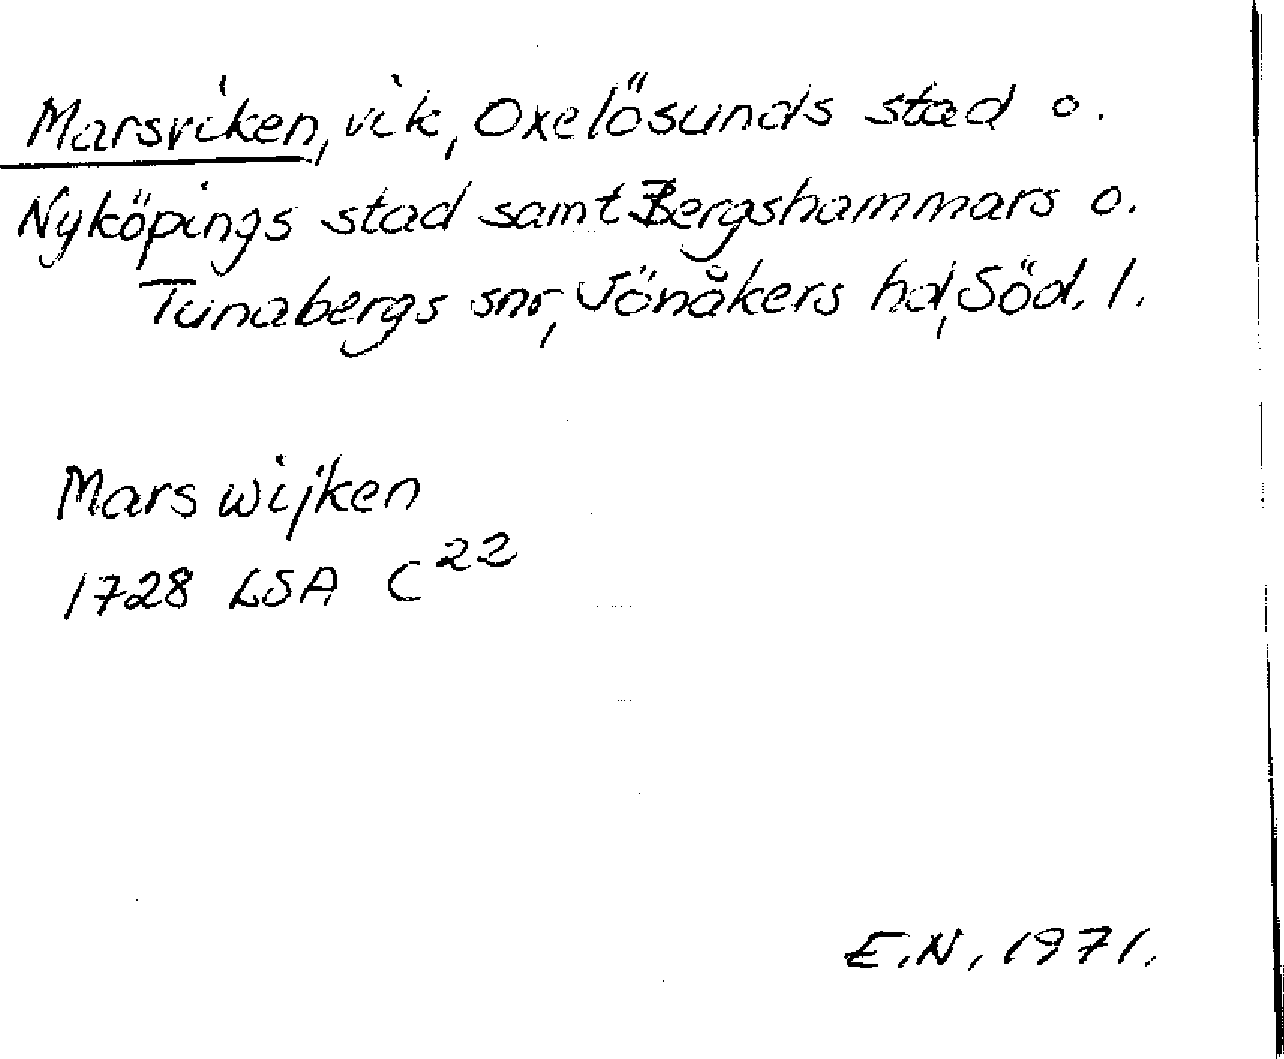 Marsviken, vik, Oxelösunds stad o.
Nyköpings stad samt Bergshammars o.
Tunabergs snr, Jönåkers hd, Söd. l.
Mars wijken
1728 LSA C 22
E.N. 1971.